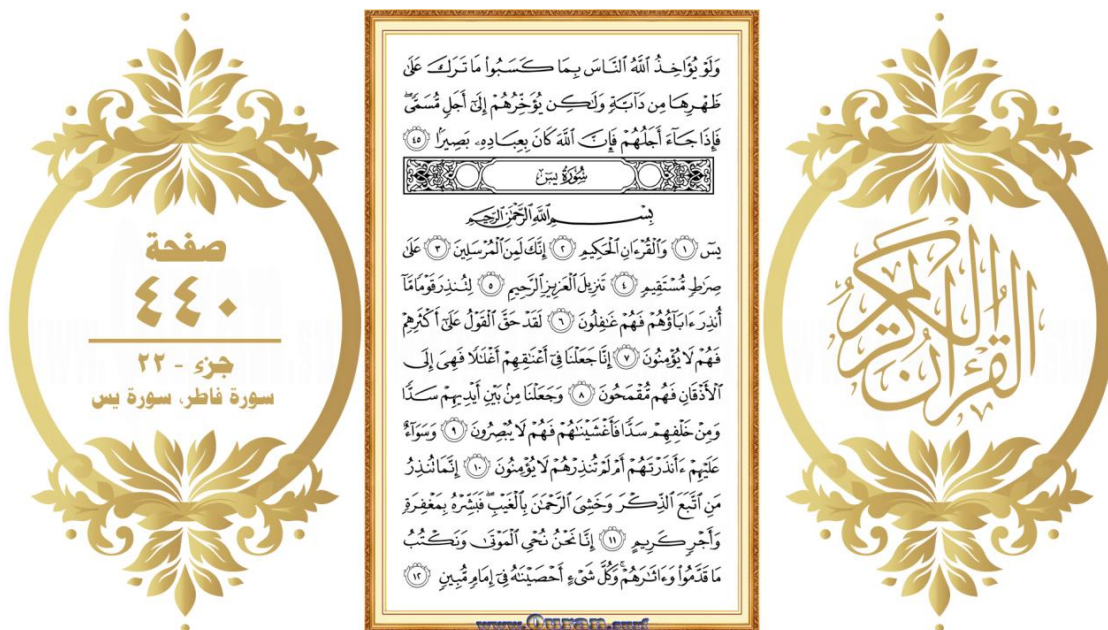 صفحة
٤٤٠
جزء - ٢٢
سورة فاطر، سورة يس
وَلَوْ يُؤَاخِذُ اللَّهُ النَّاسَ بِمَا كَسَبُوا۟ مَا تَرَكَ عَلَىٰ
ظَهْرِهَا مِن دَآبَّةٍ وَلَـٰكِن يُؤَخِّرُهُمْ إِلَىٰٓ أَجَلٍ مُّسَمًّى ۖ
فَإِذَا جَآءَ أَجَلُهُمْ فَإِنَّ اللَّهَ كَانَ بِعِبَادِهِۦ بَصِيرًۢا ٤٥
سُورَةُ يسٓ
بِسْمِ اللَّهِ الرَّحْمَـٰنِ الرَّحِيمِ
يسٓ ١ وَالْقُرْءَانِ الْحَكِيمِ ٢ إِنَّكَ لَمِنَ الْمُرْسَلِينَ ٣ عَلَىٰ
صِرَٰطٍ مُّسْتَقِيمٍ ٤ تَنزِيلَ الْعَزِيزِ الرَّحِيمِ ٥ لِتُنذِرَ قَوْمًا مَّآ
أُنذِرَ ءَابَآؤُهُمْ فَهُمْ غَـٰفِلُونَ ٦ لَقَدْ حَقَّ الْقَوْلُ عَلَىٰٓ أَكْثَرِهِمْ
فَهُمْ لَا يُؤْمِنُونَ ٧ إِنَّا جَعَلْنَا فِىٓ أَعْنَـٰقِهِمْ أَغْلَـٰلًا فَهِىَ إِلَى
الْأَذْقَانِ فَهُم مُّقْمَحُونَ ٨ وَجَعَلْنَا مِنۢ بَيْنِ أَيْدِيهِمْ سَدًّا
وَمِنْ خَلْفِهِمْ سَدًّا فَأَغْشَيْنَـٰهُمْ فَهُمْ لَا يُبْصِرُونَ ٩ وَسَوَآءٌ
عَلَيْهِمْ ءَأَنذَرْتَهُمْ أَمْ لَمْ تُنذِرْهُمْ لَا يُؤْمِنُونَ ١٠ إِنَّمَا تُنذِرُ
مَنِ اتَّبَعَ الذِّكْرَ وَخَشِىَ الرَّحْمَـٰنَ بِالْغَيْبِ ۖ فَبَشِّرْهُ بِمَغْفِرَةٍ
وَأَجْرٍ كَرِيمٍ ١١ إِنَّا نَحْنُ نُحْىِ الْمَوْتَىٰ وَنَكْتُبُ
مَا قَدَّمُوا۟ وَءَاثَـٰرَهُمْ ۚ وَكُلَّ شَىْءٍ أَحْصَيْنَـٰهُ فِىٓ إِمَامٍ مُّبِينٍ ١٢
www.Quran.surf
القرآن الكريم